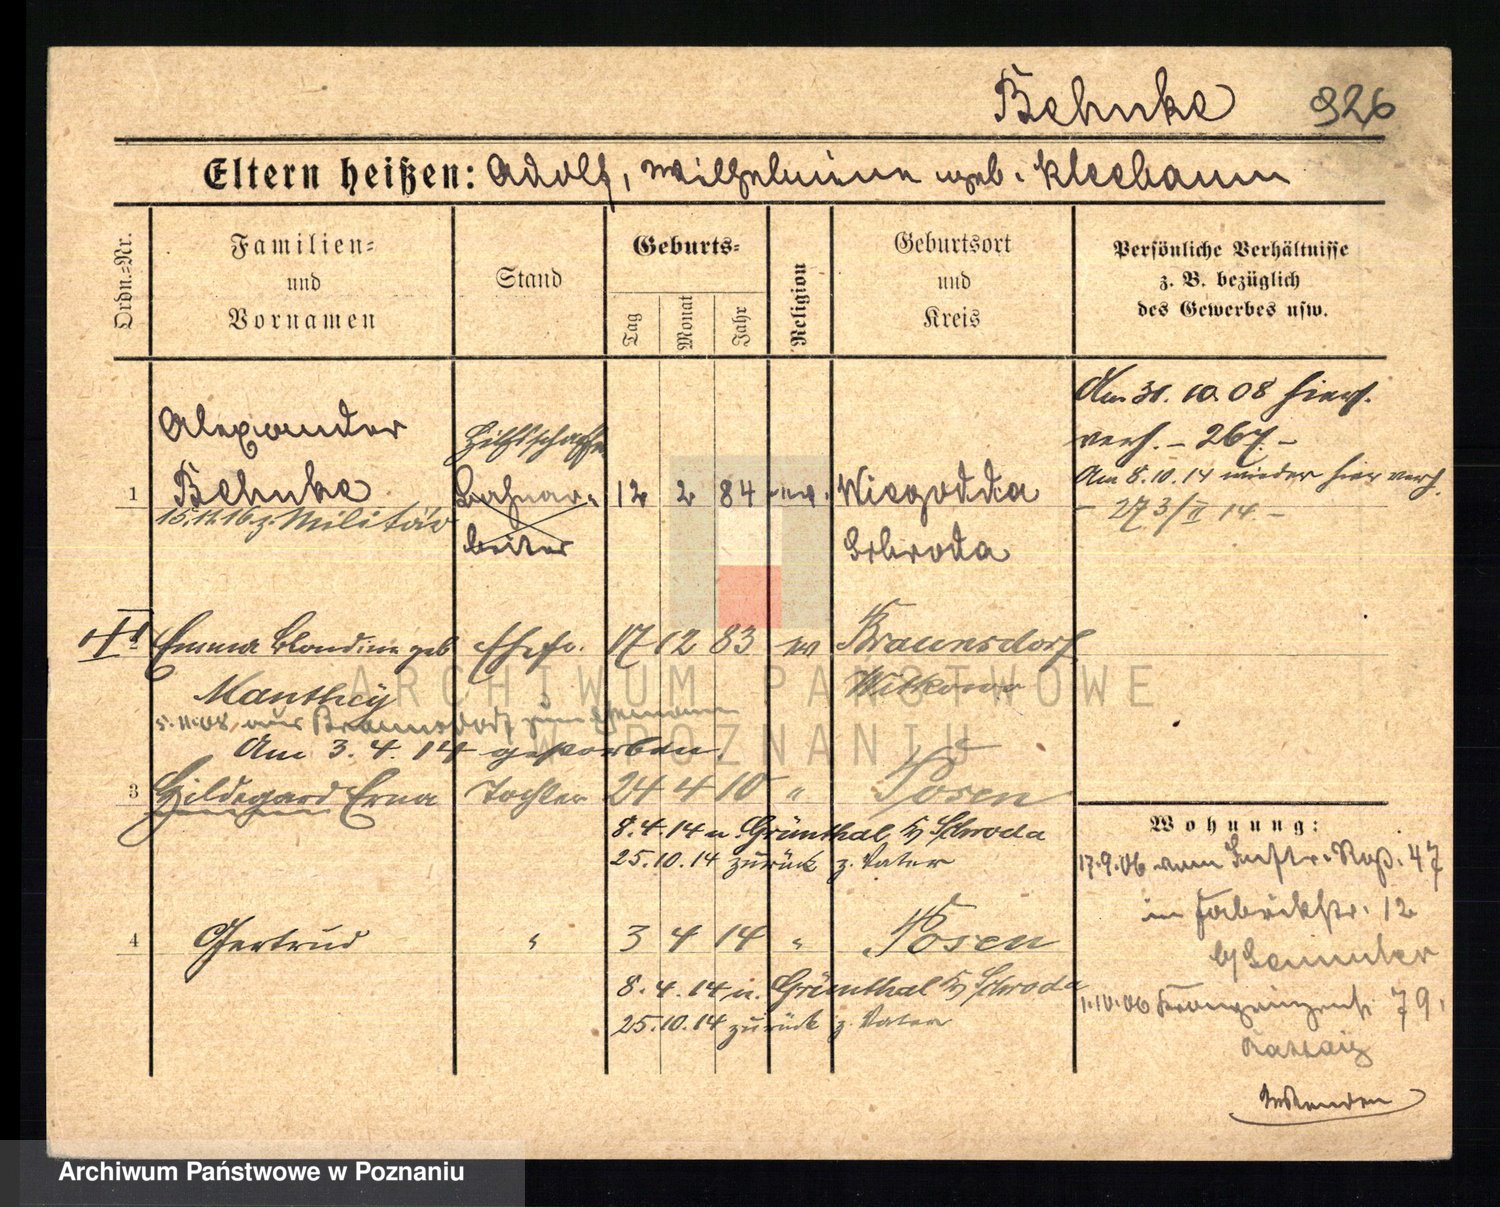 Behnke 926
Eltern heißen: Adolf, Wilhelmine geb. Kleebaum
Ordn.=Nr.
Familien=
und
Vornamen
Stand
Geburts=
Tag
Monat
Jahr
Religion
Geburtsort
und
Kreis
Persönliche Verhältnisse
z. B. bezüglich
des Gewerbes usw.
Am 31. 10. 08 hier
verh. – 267 –
Am 8.10.14 wieder hier verh.
– 273/II 14 –
Alexander Hilfsschaffn
1 Behnke Bahnar- 12 2 84 ev. Wiegodda
beiter Schroda
15.11.16 z. Militär
Emma Blondine geb Ehefr. 17 12 83 ev Braunsdorf
Manthey Witkowo
5.11.08 aus Braunsdorf zum Ehemann
Am 3. 4. 14 gestorben.
3 Hildegard Erna Tochter 24 4 10 " Posen
8.4.14 n. Grünthal b/ Schroda
25.10.14 zurück z. Vater
4 Gertrud " 3 4 14 " Posen
8.4.14 n. Grünthal b/ Schroda
25.10.14 zurück z. Vater
Wohnung:
17.9.06 vom 47
in Fabrikstr. 12
b/
1.10.06 Kronprinzenstr. 79.
Wenden
ARCHIWUM PAŃSTWOWE
W POZNANIU
Archiwum Państwowe w Poznaniu